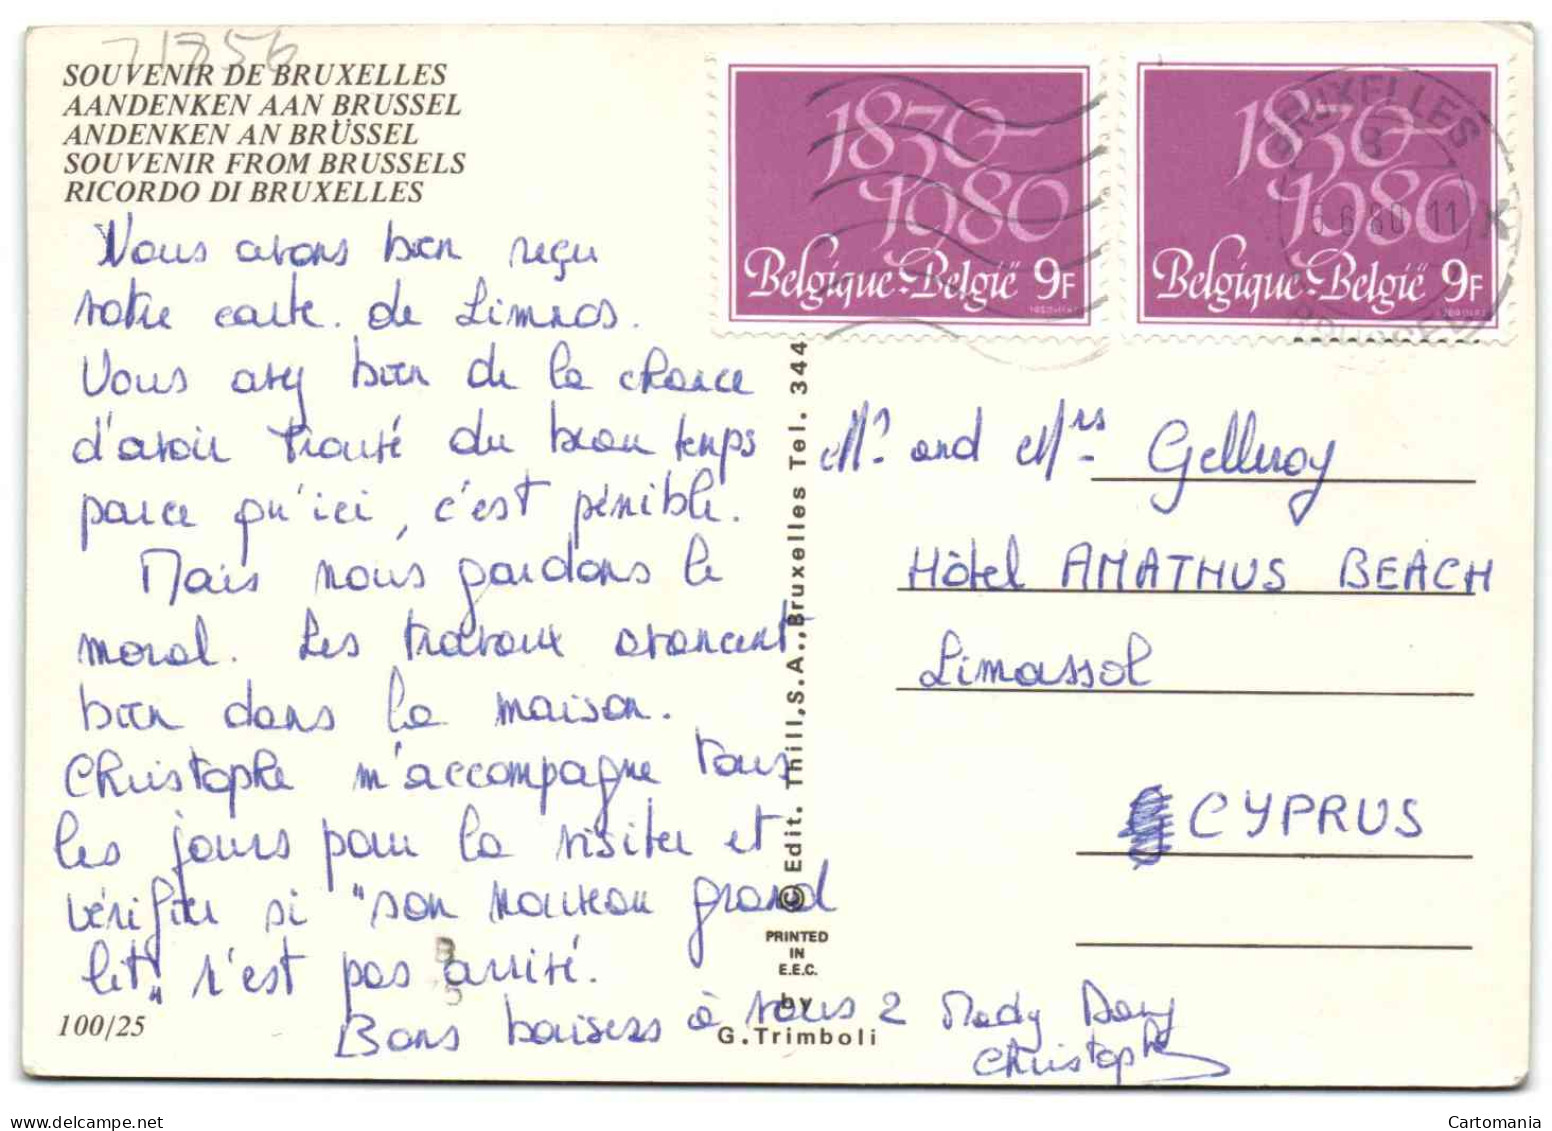 71856
SOUVENIR DE BRUXELLES
AANDENKEN AAN BRUSSEL
ANDENKEN AN BRÜSSEL
SOUVENIR FROM BRUSSELS
RICORDO DI BRUXELLES
1830-
1980
Belgique-België 9F
1830-
1980
Belgique-België 9F
BRUXELLES
6.6.80 11
BRUSSEL
Nous avons bien reçu
votre carte. de Limnos.
Vous avez bien de la chance
d'avoir trouvé du beau temps
parce qu'ici, c'est pénible.
Mais nous gardons le
moral. Les travaux avancent
bien dans la maison.
Christophe m'accompagne tous
les jours pour la visiter et
vérifier si "son nouveau grand
lit" n'est pas arrivé.
Bons baisers à vous 2 Mady Dany
Christophe
100/25
© Edit. Thill, S.A., Bruxelles Tel. 344
PRINTED
IN
E.E.C.
by
G. Trimboli
Mr and Mrs Gelleroy
Hôtel AMATHUS BEACH
Limassol
CYPRUS
Cartomania